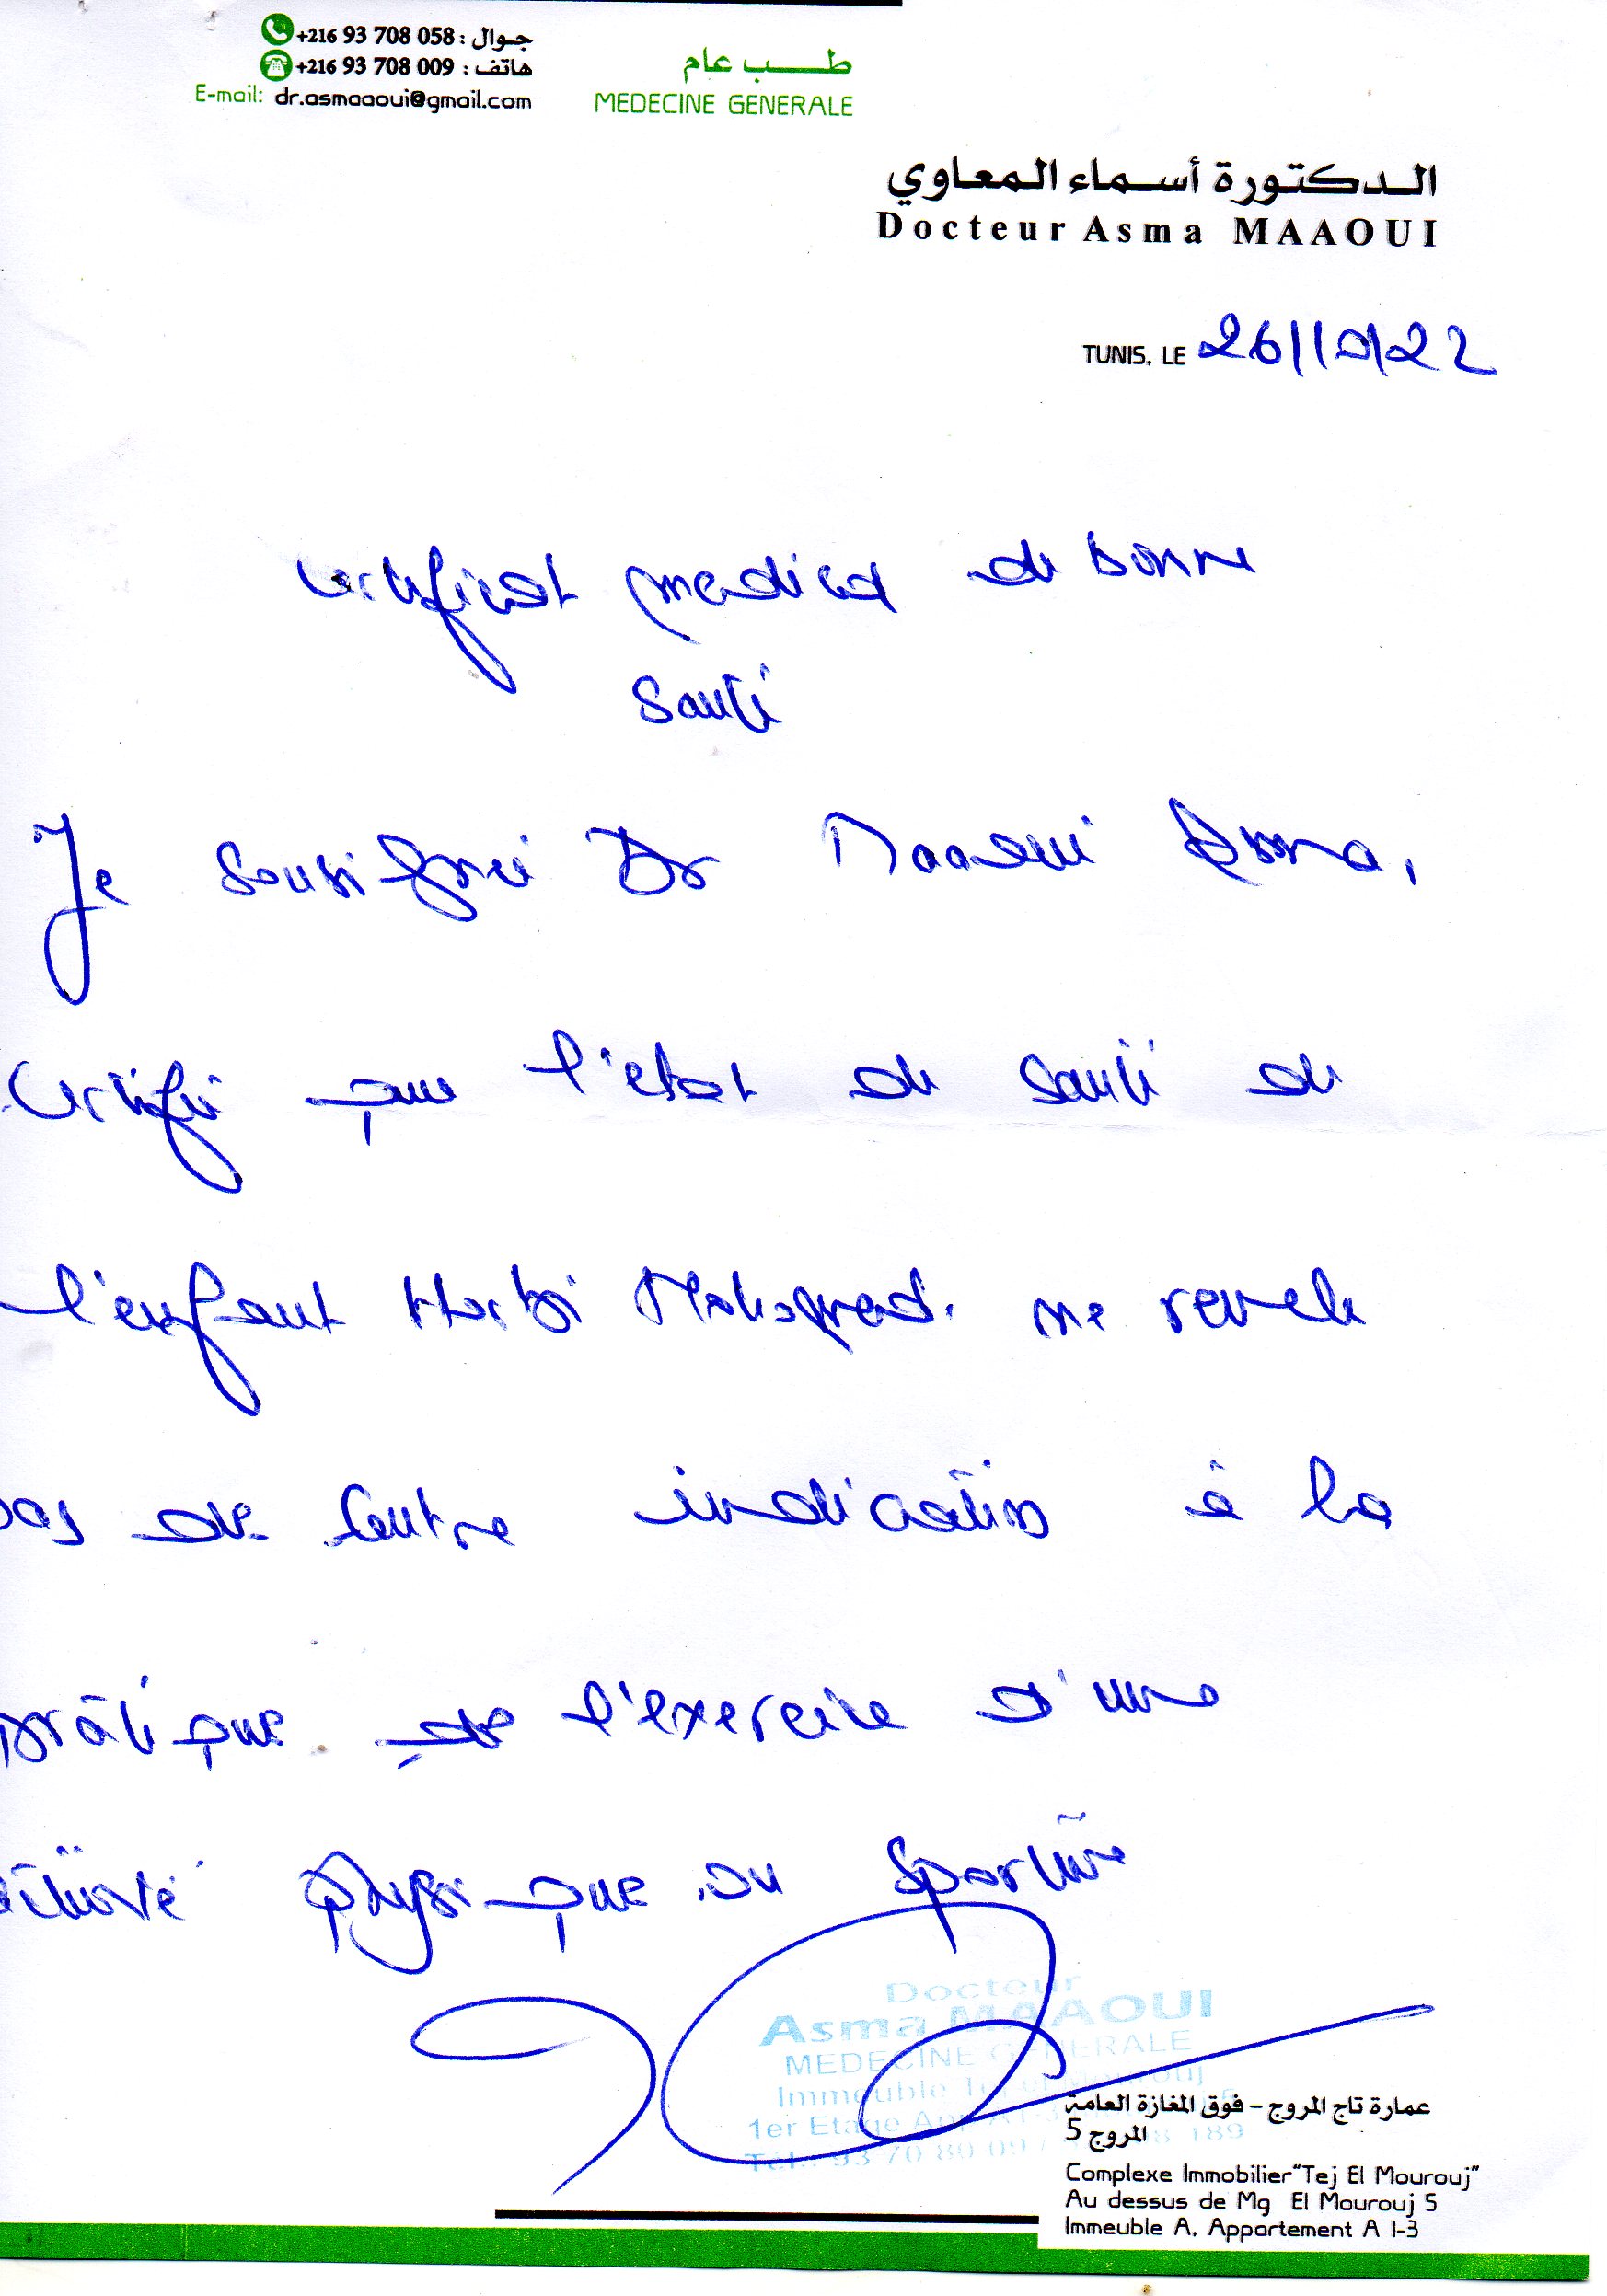 +216 93 708 058 : جـوال
+216 93 708 009 : هاتف
E-mail: dr.asmaaoui@gmail.com
طـــب عام
MEDECINE GENERALE
الـدكتـورة أسـماء المعـاوي
Docteur Asma MAAOUI
TUNIS, LE 26/12/22
certificat medical de bonne
santé
Je soussigné Dr Maaoui Asma,
certifie que l'état de santé de
l'enfant Harbi Mohamed. ne revele
pas de contre indication à la
pratique de l'exercice d'une
activité physique ou sportive
Docteur
Asma MAAOUI
MEDECINE GENERALE
Immeuble Tej el Mourouj
1er Etage App
Tél.: 93 70 80 09 / 189
عمارة تاج المروج - فوق المغازة العامة
المروج 5
Complexe Immobilier"Tej El Mourouj"
Au dessus de Mg El Mourouj 5
Immeuble A, Appartement A 1-3